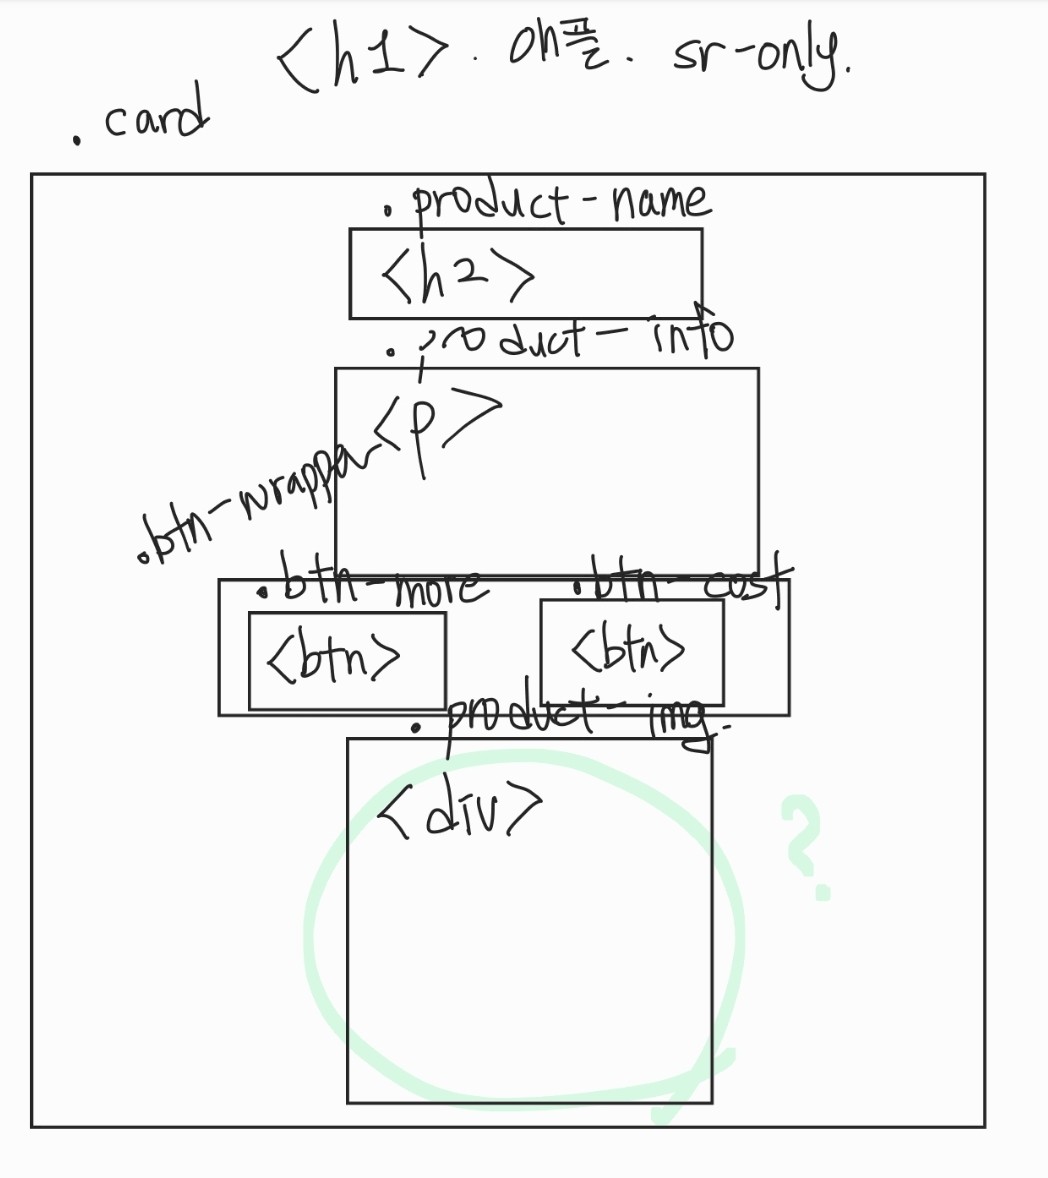 <h1>. 애플. sr-only.
.card
.product-name
<h2>
.product-info
<p>
.btn-wrapper
.btn-more .btn-cost
<btn> <btn>
.product-img.
<div>
?